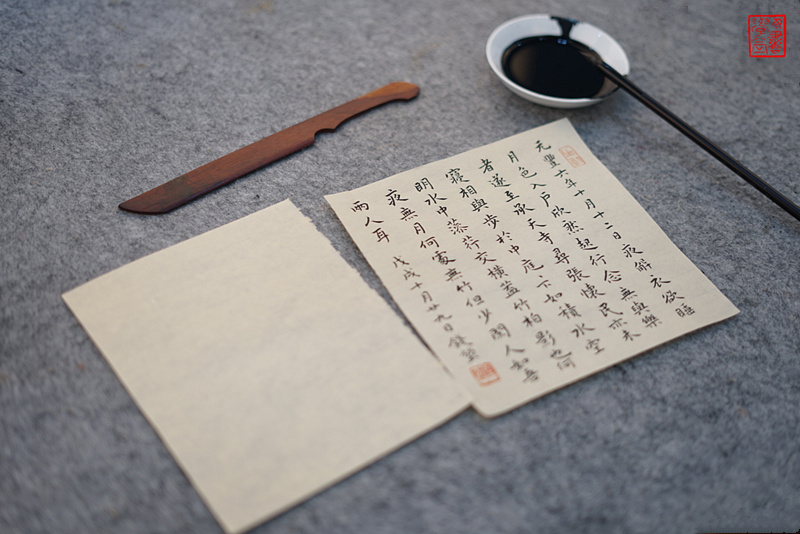 元豐六年十月十二日夜解衣欲睡
月色入戶欣然起行念無與樂
者遂至承天寺尋張懷民亦未
寢相與步於中庭下如積水空
明水中藻荇交橫蓋竹柏影也何
夜無月何處無竹但少閒人如吾
兩人耳 戊戌十月廿九日錢